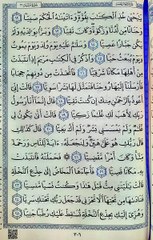 يَٰيَحۡيَىٰ خُذِ ٱلۡكِتَٰبَ بِقُوَّةٖۖ وَءَاتَيۡنَٰهُ ٱلۡحُكۡمَ صَبِيّٗا ١٢
وَحَنَانٗا مِّن لَّدُنَّا وَزَكَوٰةٗۖ وَكَانَ تَقِيّٗا ١٣ وَبَرَّۢا بِوَٰلِدَيۡهِ وَلَمۡ
يَكُن جَبَّارًا عَصِيّٗا ١٤ وَسَلَٰمٌ عَلَيۡهِ يَوۡمَ وُلِدَ وَيَوۡمَ يَمُوتُ
وَيَوۡمَ يُبۡعَثُ حَيّٗا ١٥ وَٱذۡكُرۡ فِي ٱلۡكِتَٰبِ مَرۡيَمَ إِذِ ٱنتَبَذَتۡ
مِنۡ أَهۡلِهَا مَكَانٗا شَرۡقِيّٗا ١٦ فَٱتَّخَذَتۡ مِن دُونِهِمۡ حِجَابٗا
فَأَرۡسَلۡنَآ إِلَيۡهَا رُوحَنَا فَتَمَثَّلَ لَهَا بَشَرٗا سَوِيّٗا ١٧ قَالَتۡ
إِنِّيٓ أَعُوذُ بِٱلرَّحۡمَٰنِ مِنكَ إِن كُنتَ تَقِيّٗا ١٨ قَالَ إِنَّمَآ أَنَا۠
رَسُولُ رَبِّكِ لِأَهَبَ لَكِ غُلَٰمٗا زَكِيّٗا ١٩ قَالَتۡ أَنَّىٰ يَكُونُ لِي
غُلَٰمٞ وَلَمۡ يَمۡسَسۡنِي بَشَرٞ وَلَمۡ أَكُ بَغِيّٗا ٢٠ قَالَ كَذَٰلِكِ قَالَ
رَبُّكِ هُوَ عَلَيَّ هَيِّنٞۖ وَلِنَجۡعَلَهُۥٓ ءَايَةٗ لِّلنَّاسِ وَرَحۡمَةٗ مِّنَّاۚ
وَكَانَ أَمۡرٗا مَّقۡضِيّٗا ٢١ ۞ فَحَمَلَتۡهُ فَٱنتَبَذَتۡ بِهِۦ مَكَانٗا
قَصِيّٗا ٢٢ فَأَجَآءَهَا ٱلۡمَخَاضُ إِلَىٰ جِذۡعِ ٱلنَّخۡلَةِ
قَالَتۡ يَٰلَيۡتَنِي مِتُّ قَبۡلَ هَٰذَا وَكُنتُ نَسۡيٗا مَّنسِيّٗا ٢٣
فَنَادَىٰهَا مِن تَحۡتِهَآ أَلَّا تَحۡزَنِي قَدۡ جَعَلَ رَبُّكِ تَحۡتَكِ سَرِيّٗا ٢٤
وَهُزِّيٓ إِلَيۡكِ بِجِذۡعِ ٱلنَّخۡلَةِ تُسَٰقِطۡ عَلَيۡكِ رُطَبٗا جَنِيّٗا ٢٥
٣٠٦